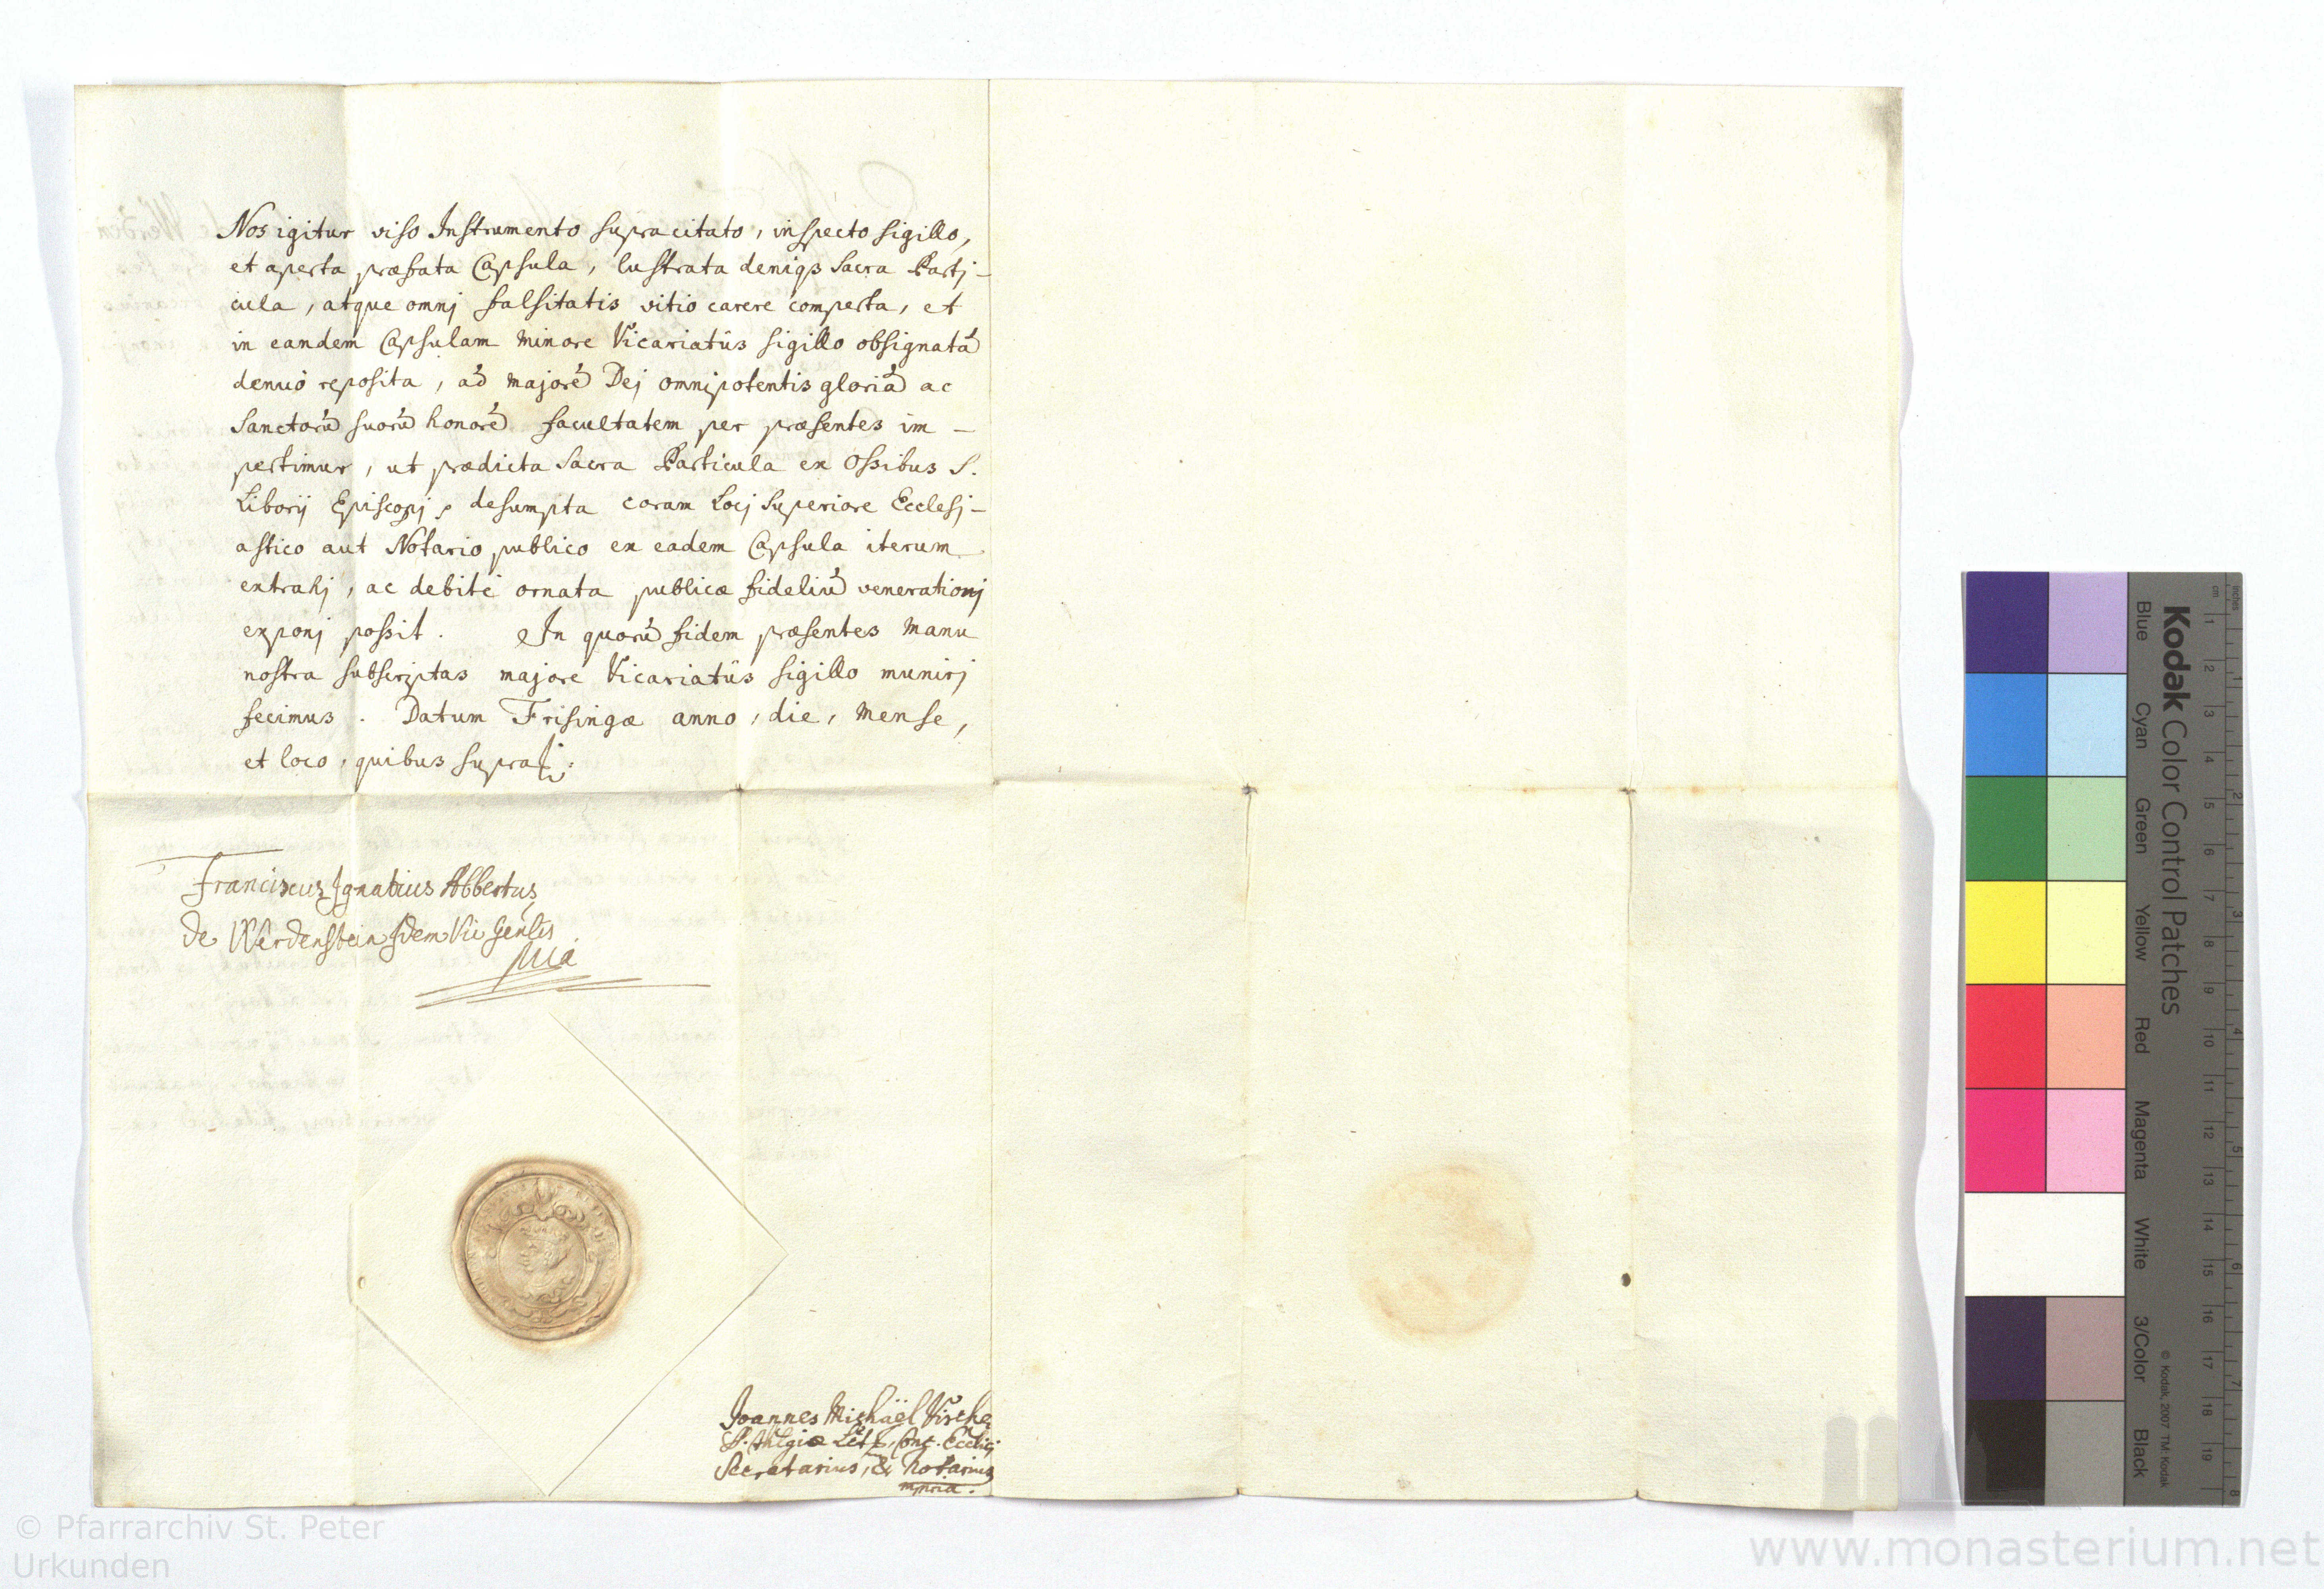 Nos igitur viso Instrumento supracitato, inspecto sigillo,
et aperta præfata Capsula, lustrata deniqȝ Sacra Partj-
cula, atque omnj falsitatis vitio carere comperta, et
in eandem Capsulam minore Vicariatûs sigillo obsignatā
denuò reposita, ad majorē Dej omnipotentis gloriā ac
Sanctorū suorū honorē facultatem per præsentes im-
pertimur, ut prædicta Sacra Particula ex Ossibus S.
Liborij Episcopj desumpta coram Locj Superiore Ecclesj-
astico aut Notario publico ex eadem Capsula iterum
extrahj, ac debitè ornata publicæ fideliū venerationj
exponj possit. In quorū fidem præsentes manu
nostra subscriptas majore Vicariatûs sigillo munirj
fecimus. Datum Frisingæ anno, die, mense,
et loco, quibus supra
Franciscus Ignatius Albertus
de Werdenstein Idem Vic Genlis
Mia
Joannes Michaël
Secretarius, & Notarius
mpria.
Kodak Color Control Patches
Blue Cyan Green Yellow Red Magenta White 3/Color Black
© Kodak, 2007 TM: Kodak
inches
cm
1 2 3 4 5 6 7 8 9 10 11 12 13 14 15 16 17 18 19
1 2 3 4 5 6 7 8
© Pfarrarchiv St. Peter
Urkunden
www.monasterium.net